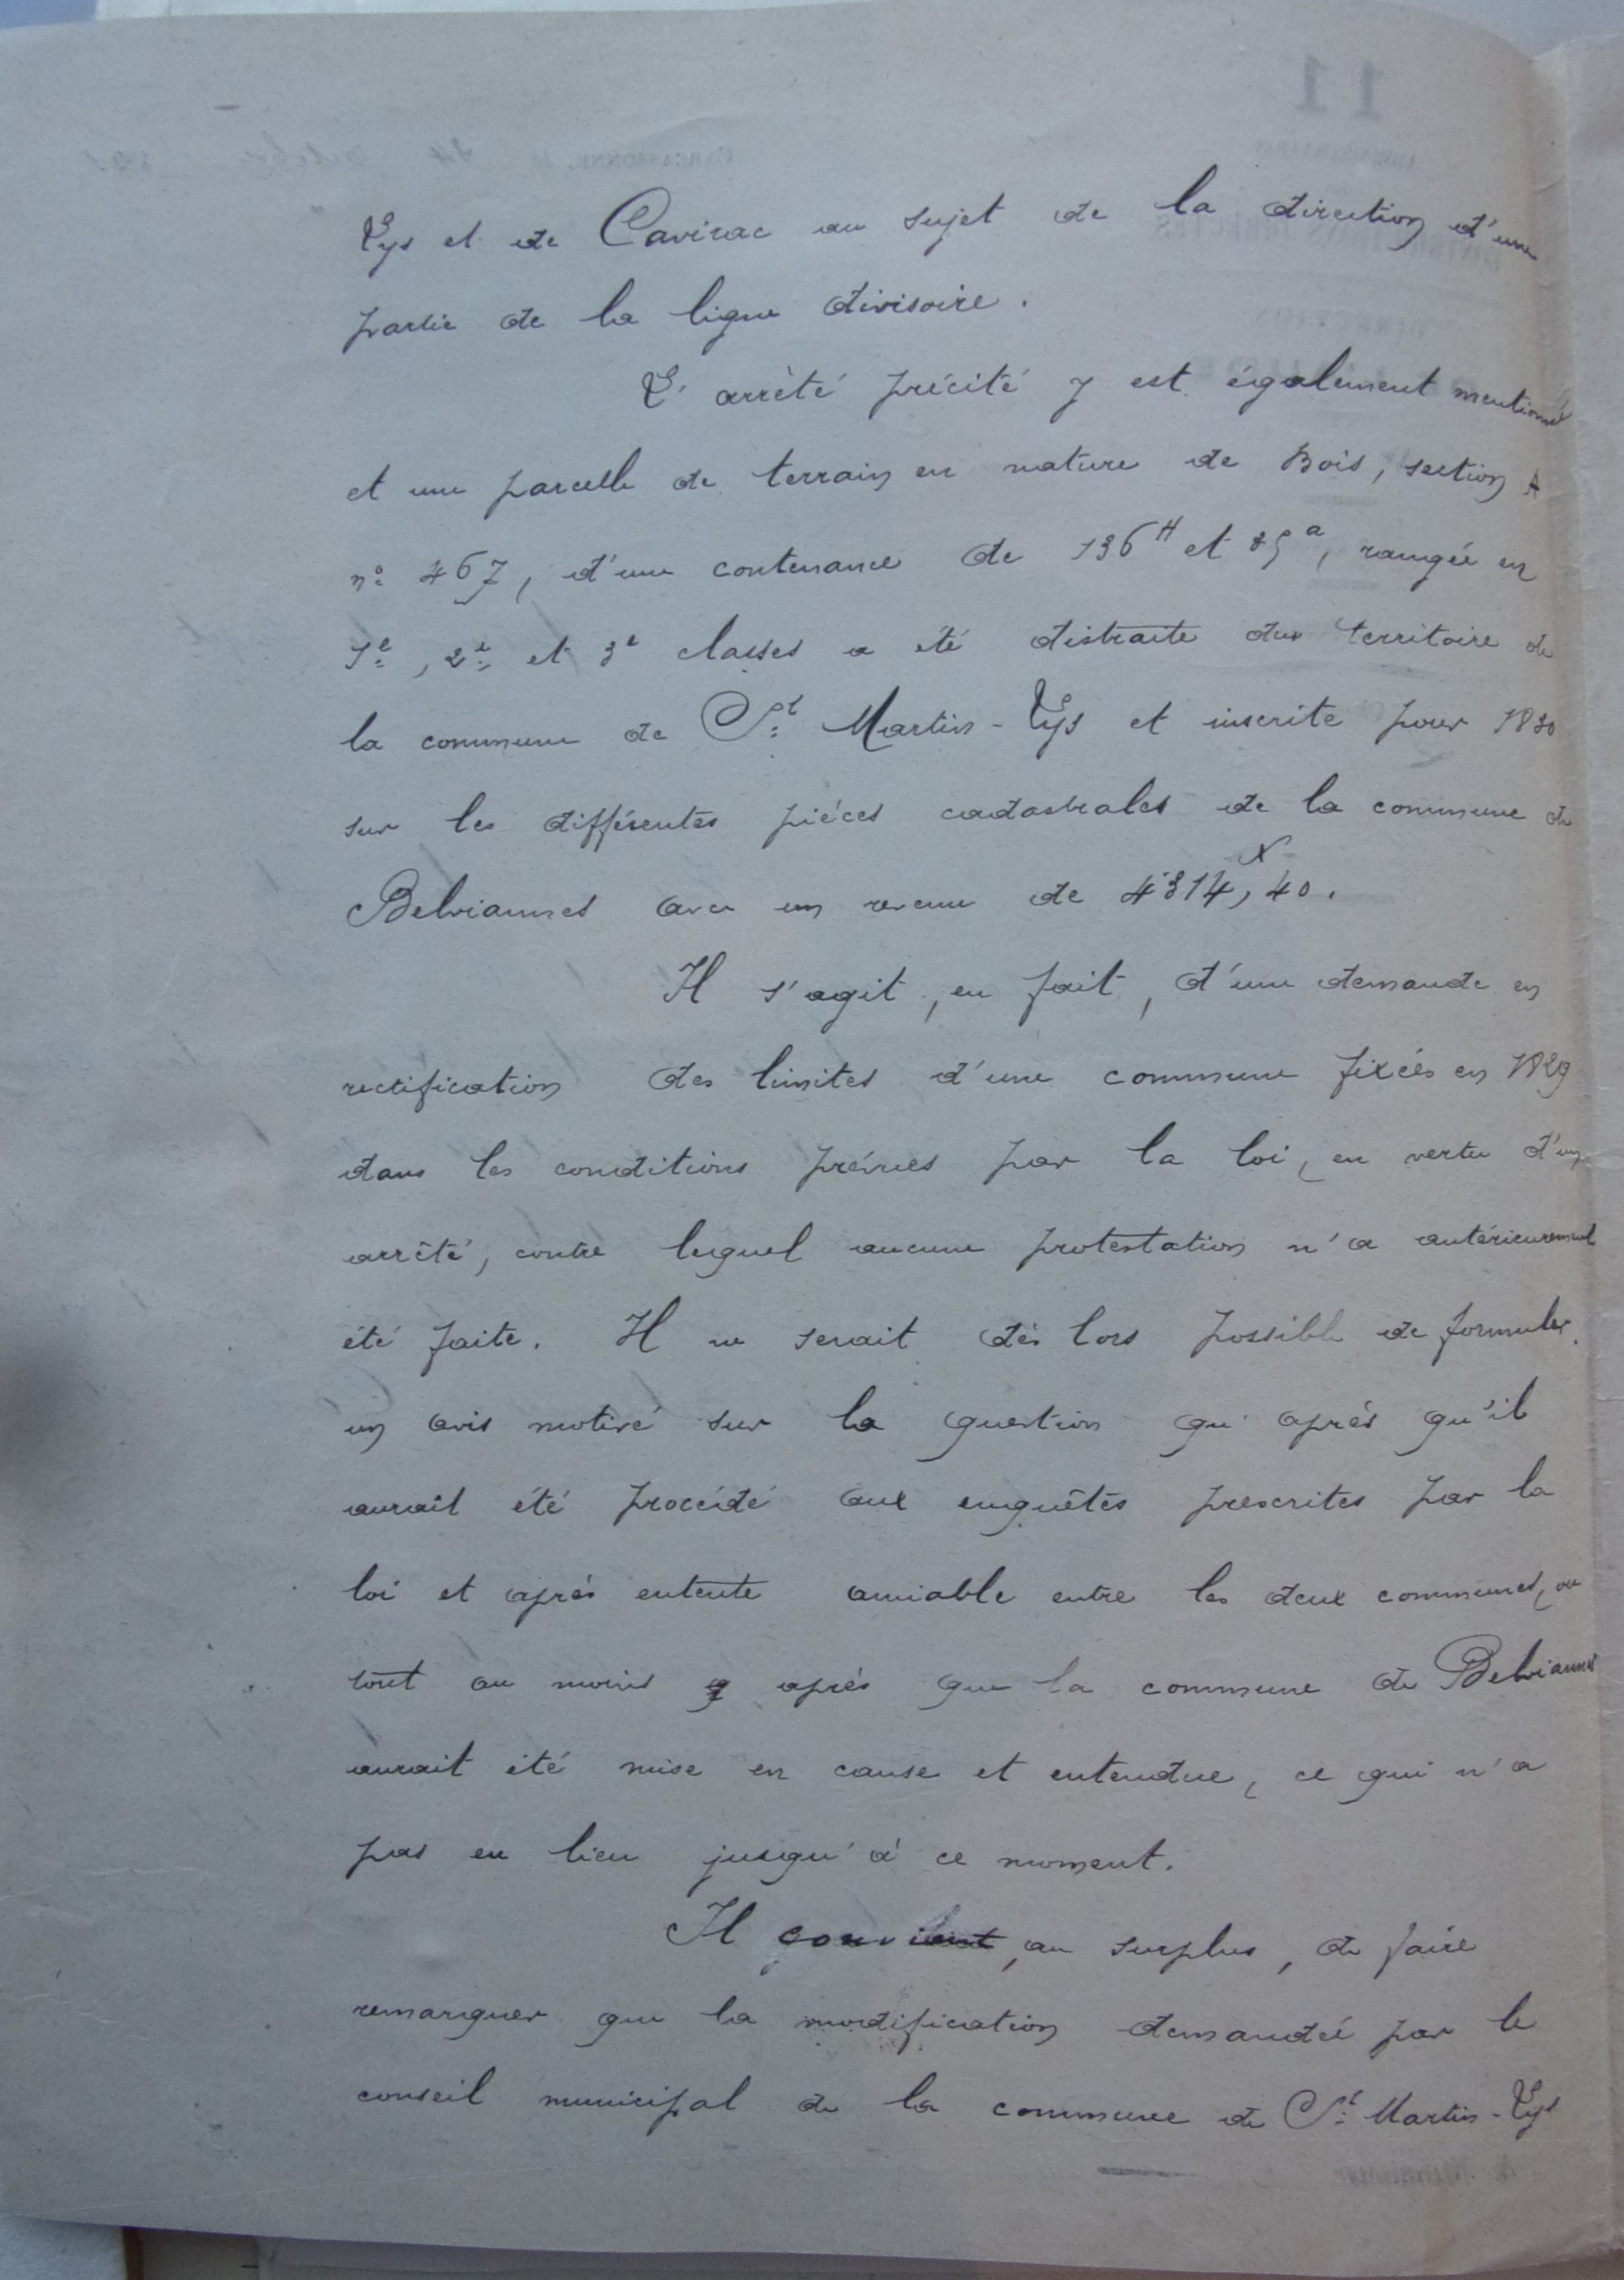 Lys et de Cavirac au sujet de la direction d'une
partie de la ligne divisoire.
L'arrêté précité y est également mentionné
et une parcelle de terrain en nature de Bois, section A
n° 467, d'une contenance de 136H et 85a, rangée en
1e, 2e et 3e classes a été distraite du territoire de
la commune de St Martin-Lys et inscrite pour 1830
sur les différentes pièces cadastrales de la commune de
Belviannes avec un revenu de 4314,40.
Il s'agit, en fait, d'une demande en
rectification des limites d'une commune fixées en 1829
dans les conditions prévues par la loi, en vertu d'un
arrêté, contre lequel aucune protestation n'a antérieurement
été faite. Il ne serait dès lors possible de formuler
un avis motivé sur la question qu'après qu'il
aurait été procédé aux enquêtes prescrites par la
loi et après entente amiable entre les deux communes, ou
tout au moins après que la commune de Belviannes
aurait été mise en cause et entendue, ce qui n'a
pas eu lieu jusqu'à ce moment.
Il convient, au surplus, de faire
remarquer que la modification demandée par le
conseil municipal de la commune de St Martin-Lys